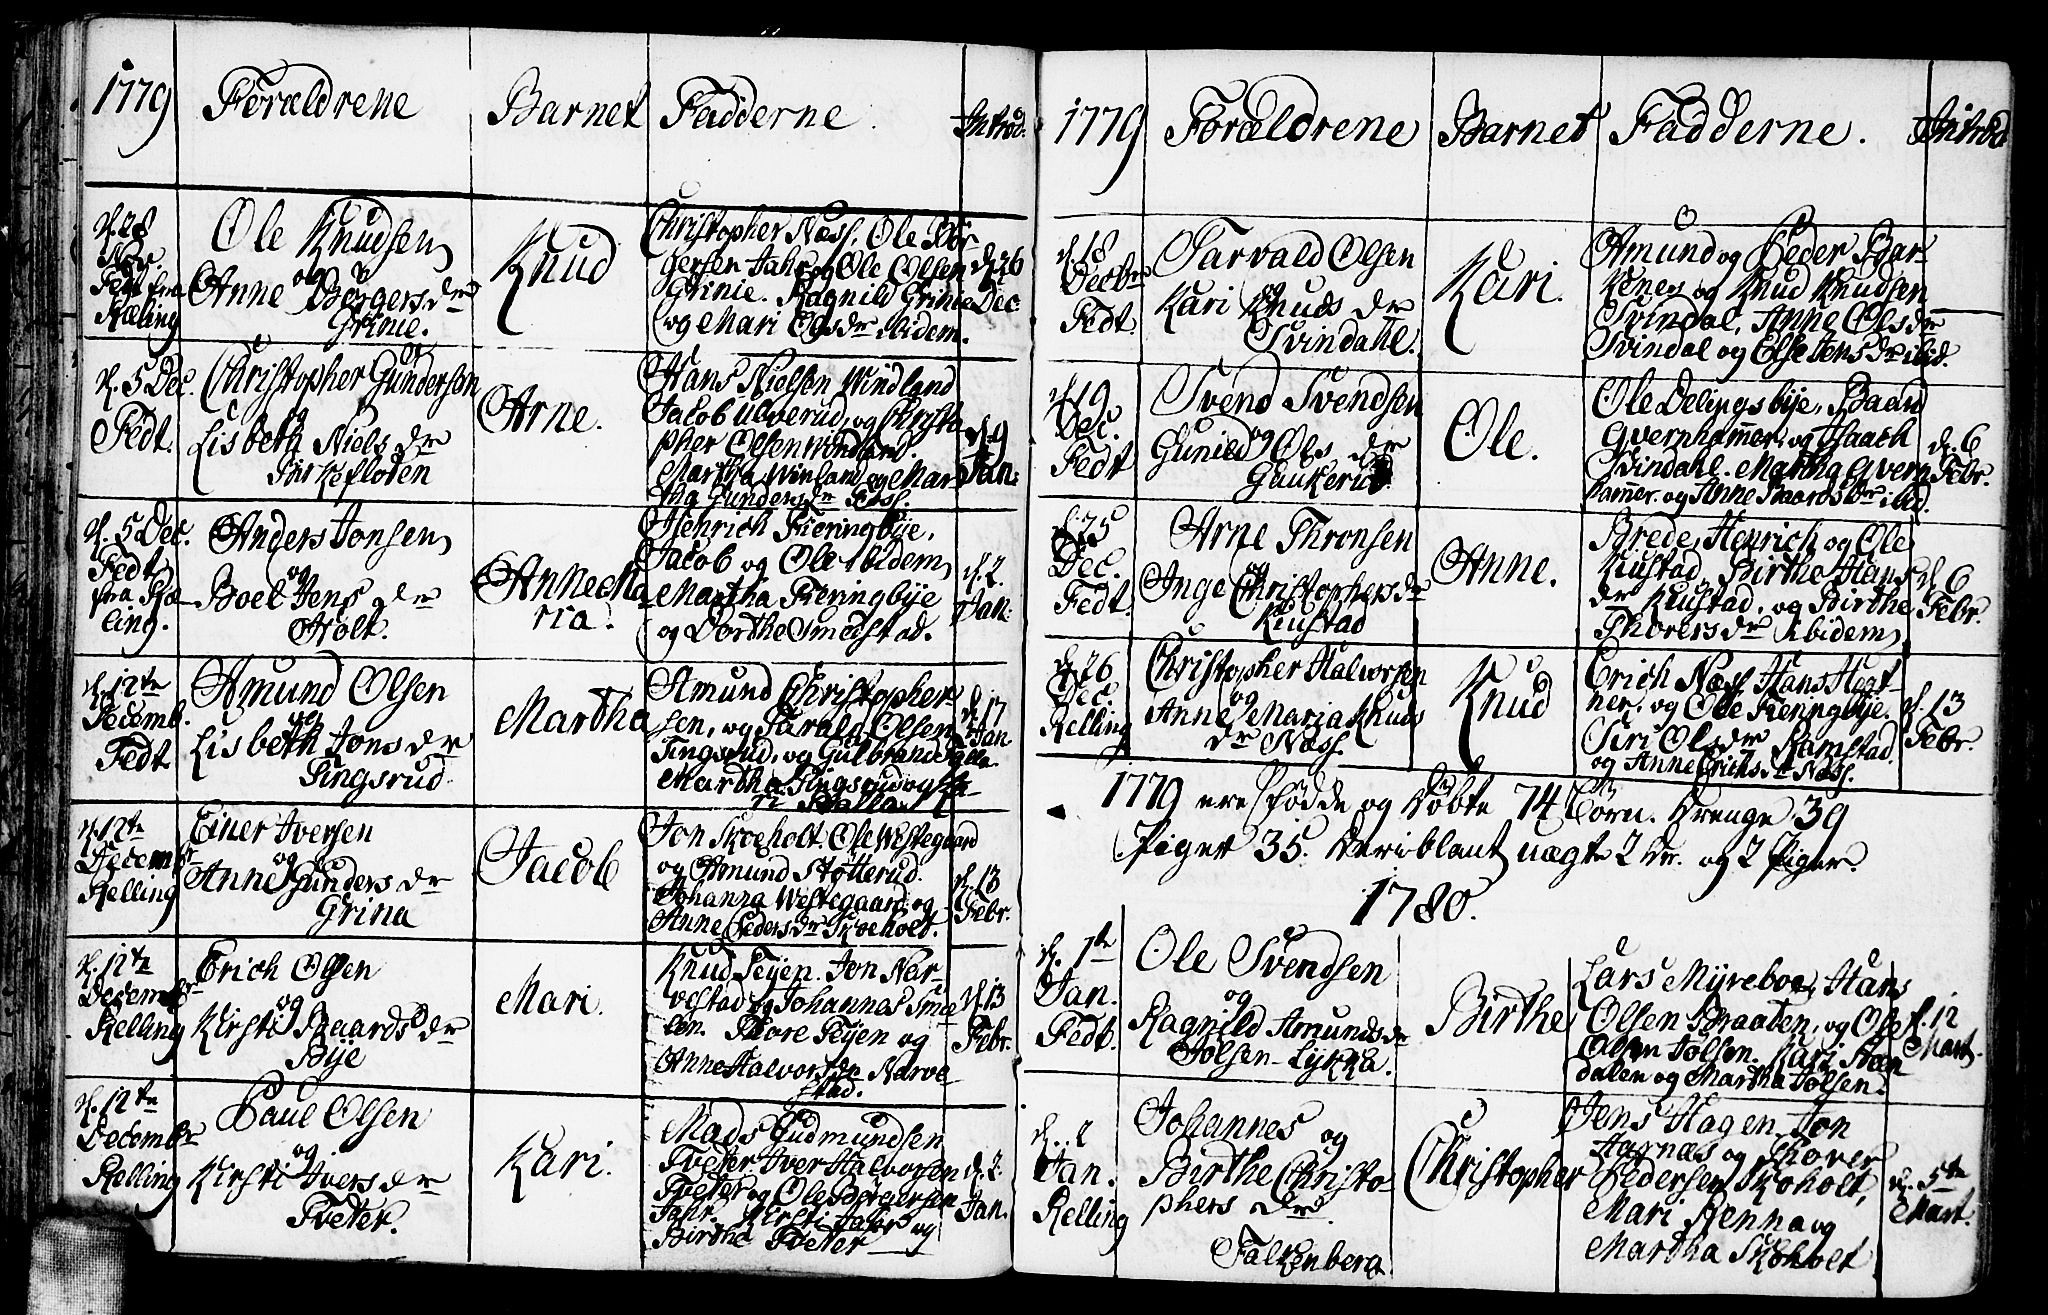 1779 Forældrene Barnet Fadderne. Introd.
d. 28 Nov. Fedt fra Ræling
Ole Knudsen
og
Anne Børgersdr
Grinie.
Knud
Christopher Næss, Ole Bør
gersen Jahr og Ole Olsen
Grinie. Ragnild Grinie
og Mari Olsdr ibidem.
d. 26
Dec.
d. 5 Dec.
Fedt.
Christopher Gundersen
og
Lisbeth Nielsdr
Birkefloten
Arne.
Hans Nielsen Vindland
Jacob Ulverud, og Christo
pher Olsen Windland.
Martha Winland og Mar-
tha Gundersdr Foss.
d. 9
Jan:
d. 5 Dec.
Fedt
fra Ræ-
ling.
Anders Jonsen
og
Boel Jens dr
Holt.
Anne Ma
ria.
Henrich Fieringbÿe,
Jacob og Ole ibidem,
Martha Fieringbÿe
og Dorthe Smedstad.
d. 2.
Jan:
d. 12te
Decemb.
Fedt
Amund Olsen
og
Lisbeth Jons dr
Tingsrud.
Martha
Amund Christopher-
sen, og Tarald Olsen
Tingsrud, og Gulbrand
Martha Tingsrud og
d. 17
Jan
d. 12te
Decembr
Relling
Einer Iversen
og
Anne Gunders dr
Grina
Jacob
Jon Skoeholt. Ole Westegaard
og Amund Støtterud.
Johanna Westegaard og
Anne Pedersdr Skoeholt.
d. 13
Febr.
d. 12te
Decembr
Relling
Erich Olsen
og
Kirsti Baards dr
Bÿe
Mari.
Knud Teÿen. Jon Nar-
vestad og Johannes Smæ
len. Thore Teÿen og
Anne Halvorsdr Narve
stad.
d. 13
Febr.
d. 12te
Decembr
Relling
Paul Olsen
og
Kirsti Ivers dr
Tveter.
Kari.
Mads Gudmundsen
Tveter, Iver Halvorsen
Tveter og Ole Børgersen
Jahr. Kirsti Jahr og
Birthe Tveter
d. 2.
Jan.
1779 Forældrene Barnet Fadderne. Introd
d. 18
Decbr
Fedt
Tarvald Olsen
og
Kari Knuds dr
Svindahl.
Kari.
Amund og Peder Bar-
kenes og Knud Knudsen
Svindal, Anne Olsdr
Svindal og Else Jens dr ibid.
d. 19
Dec.
Fedt
Svend Svendsen
og
Gunild Ols dr
Gaukerud.
Ole.
Ole Delingsbÿe, Baard
Qvernhammer, og Isaach
Svindahl. Martha Qvern
hammer. og Anne Baardsdr ibid.
d. 6
Febr.
d. 25
Dec.
Fedt.
Arne Thronsen
og
Inge Christophersdr
Kiustad
Anne.
Brede, Henrich og Ole
Kiustad, Birthe Hans
dr Kiustad, og Birthe
Thorersdr ibidem
d. 6
Febr.
d. 26
Dec.
Relling
Christopher Halvorsen
og
Anne Maria Knuds
dr Næss.
Knud
Erich Næss Hans Hegt-
ner, og Ole Fieringbÿe.
Siri Olsdr Ramstad
og Anne Erichsdr Næss.
d. 13
Febr.
1779 ere fødde og døbte 74 Börn. Drenge 39
Piger 35. Deriblant uægte 2 Dr. og 2 Piger.
1780.
d. 1te
Jan.
Fedt.
Ole Svendsen
og
Ragnild Amundsdr
Tolsen-Lykka.
Birthe
Lars Mÿreboe, Hans
Olsen Braaten, og Ole
Olsen Tolsen. Kari Stæn
dalen og Martha Tolsen.
d. 12
Mart.
d. 2
Jan.
Relling
Johannes og
Birthe Christo-
phers dr
Falkenberg.
Christopher
Jens Hagen, Jon
Aarnæs og Thorer
Pedersen Skoholt,
Mari Renna og
Martha Skoholt
d. 5te
Mart.